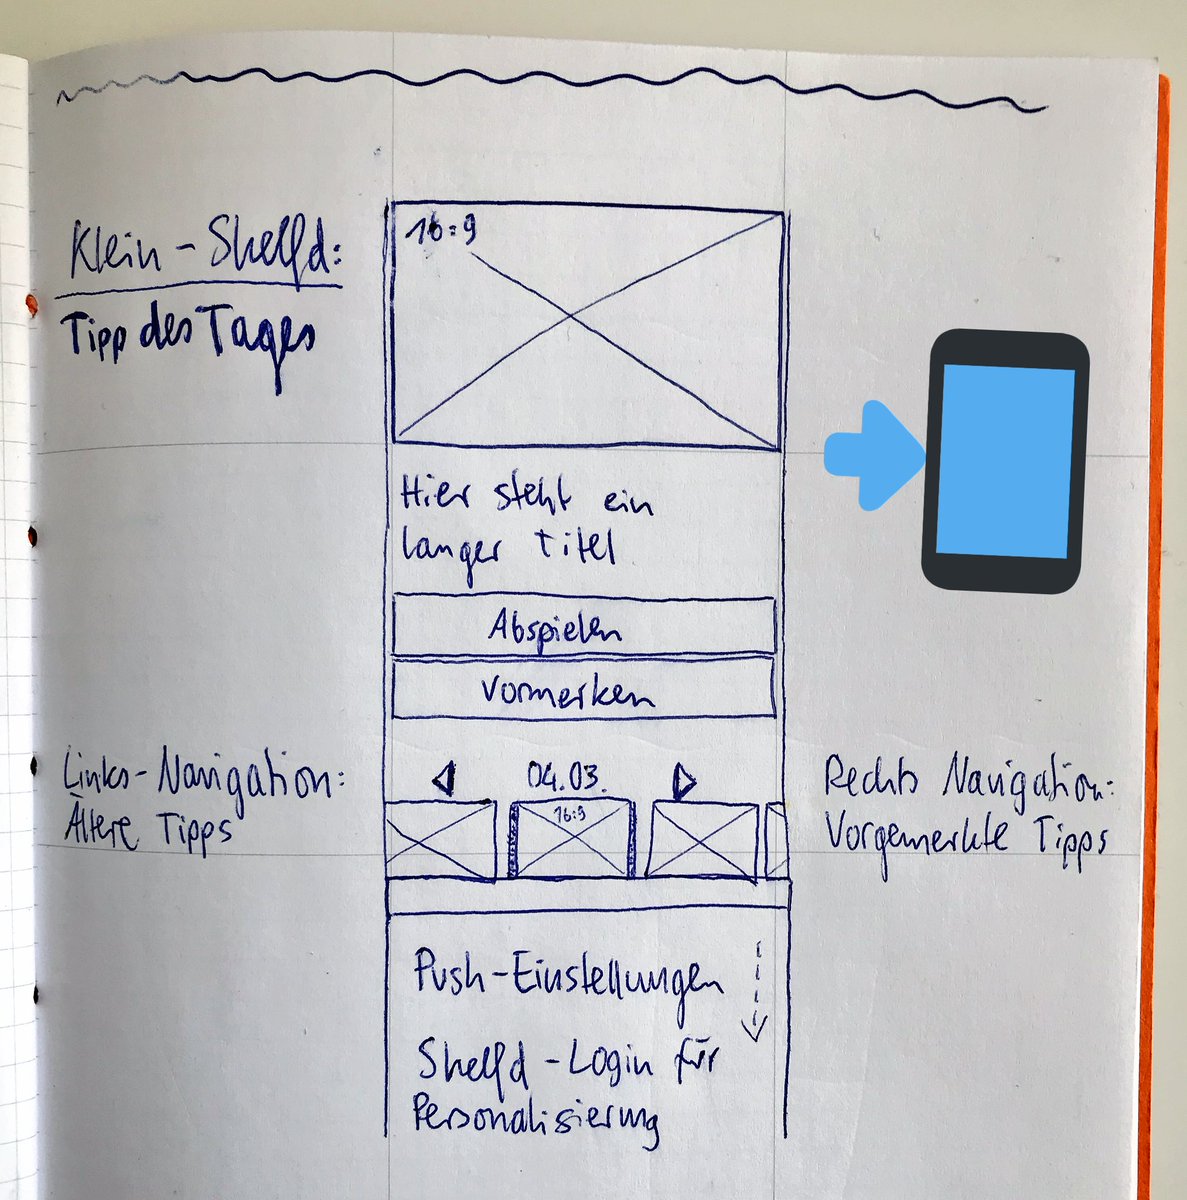 Klein-Shelfd:
Tipp des Tages
16:9
Hier steht ein
langer Titel
Abspielen
Vormerken
Links-Navigation:
Ältere Tipps
04.03.
16:9
Rechts Navigation:
Vorgemerkte Tipps
Push-Einstellungen
Shelfd-Login für
Personalisierung